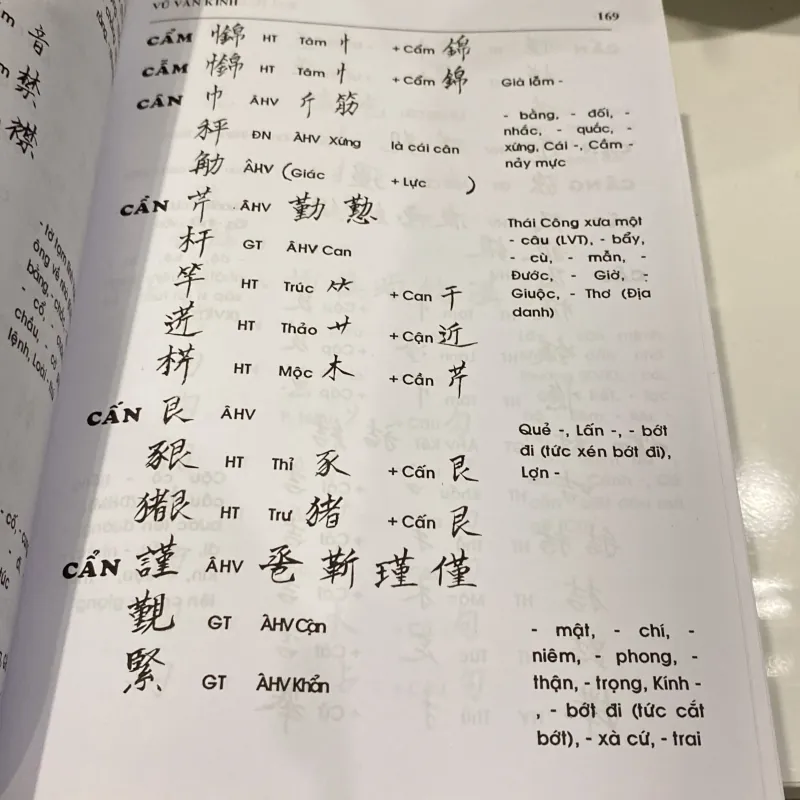 VŨ VĂN KÍNH 169
CẨM 𢣂 HT Tâm 忄 + Cẩm 錦
CẪM HT Tâm 忄 + Cẩm 錦 Già lẫm -
CÂN 巾 ÂHV 斤 筋 - bằng, - đối, -
秤 ĐN ÂHV Xứng là cái cân nhắc, - quắc, -
觔 ÂHV (Giác + Lực ) xứng, Cái -, Cầm -
nảy mực
CẦN 芹 ÂHV 勤 懃 Thái Công xưa một
杆 GT ÂHV Can - câu (LVT), - bẩy,
竿 HT Trúc + Can 干 - cù, - mẫn, -
HT Thảo 艹 + Cận 近 Đước, - Giờ, -
HT Mộc 木 + Cần 芹 Giuộc, - Thơ (Địa
danh)
CẤN 艮 ÂHV Quẻ -, Lấn -, - bớt
豤 HT Thỉ 豕 + Cấn 艮 đi (tức xén bớt đi),
HT Trư 猪 + Cấn 艮 Lợn -
CẨN 謹 ÂHV 巹 靳 瑾 僅
覲 GT ÂHV Cận - mật, - chí, -
緊 GT ÂHV Khẩn niêm, - phong, -
thận, - trọng, Kính -
, - bớt đi (tức cắt
bớt), - xà cứ, - trai
音
禁
襟